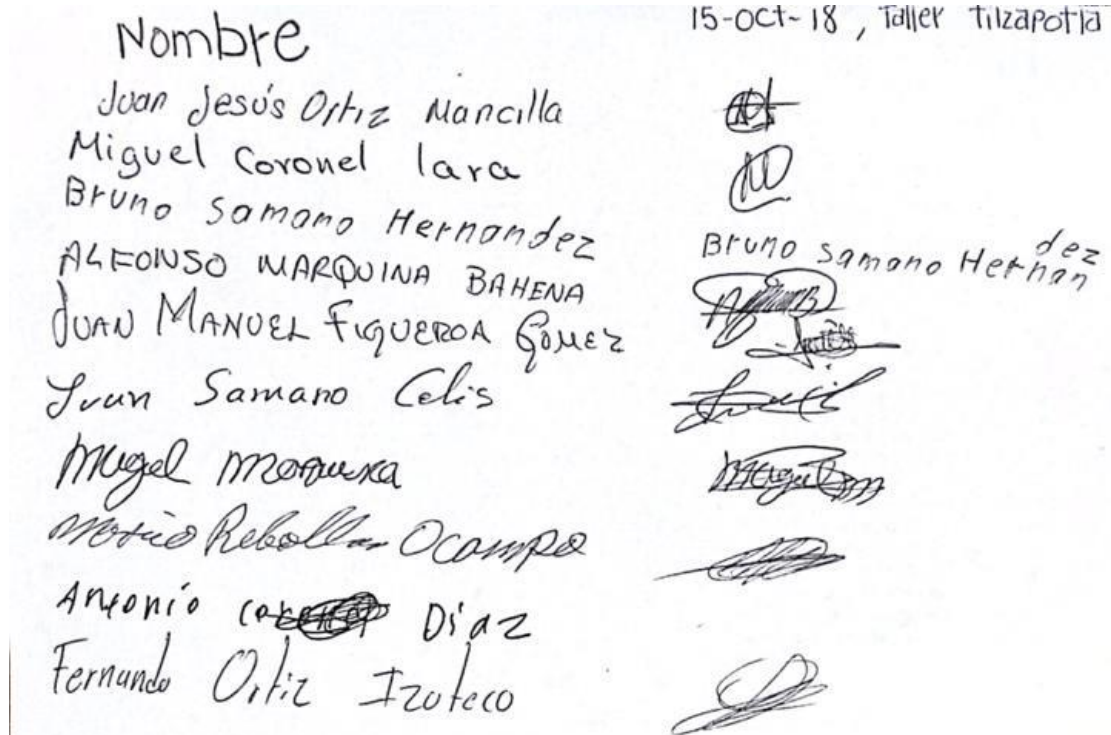 Nombre 15-oct-18, Taller Tilzapotla
Juan Jesús Ortiz Mancilla
Miguel Coronel lara
Bruno Samano Hernandez Bruno Samano Hernandez
ALFONSO MARQUINA BAHENA
JUAN MANUEL FIGUEROA GÓMEZ
Samano Celis
Mugel
Rebollar Ocampo
Antonio Díaz
Fernando Ortiz Izoteco